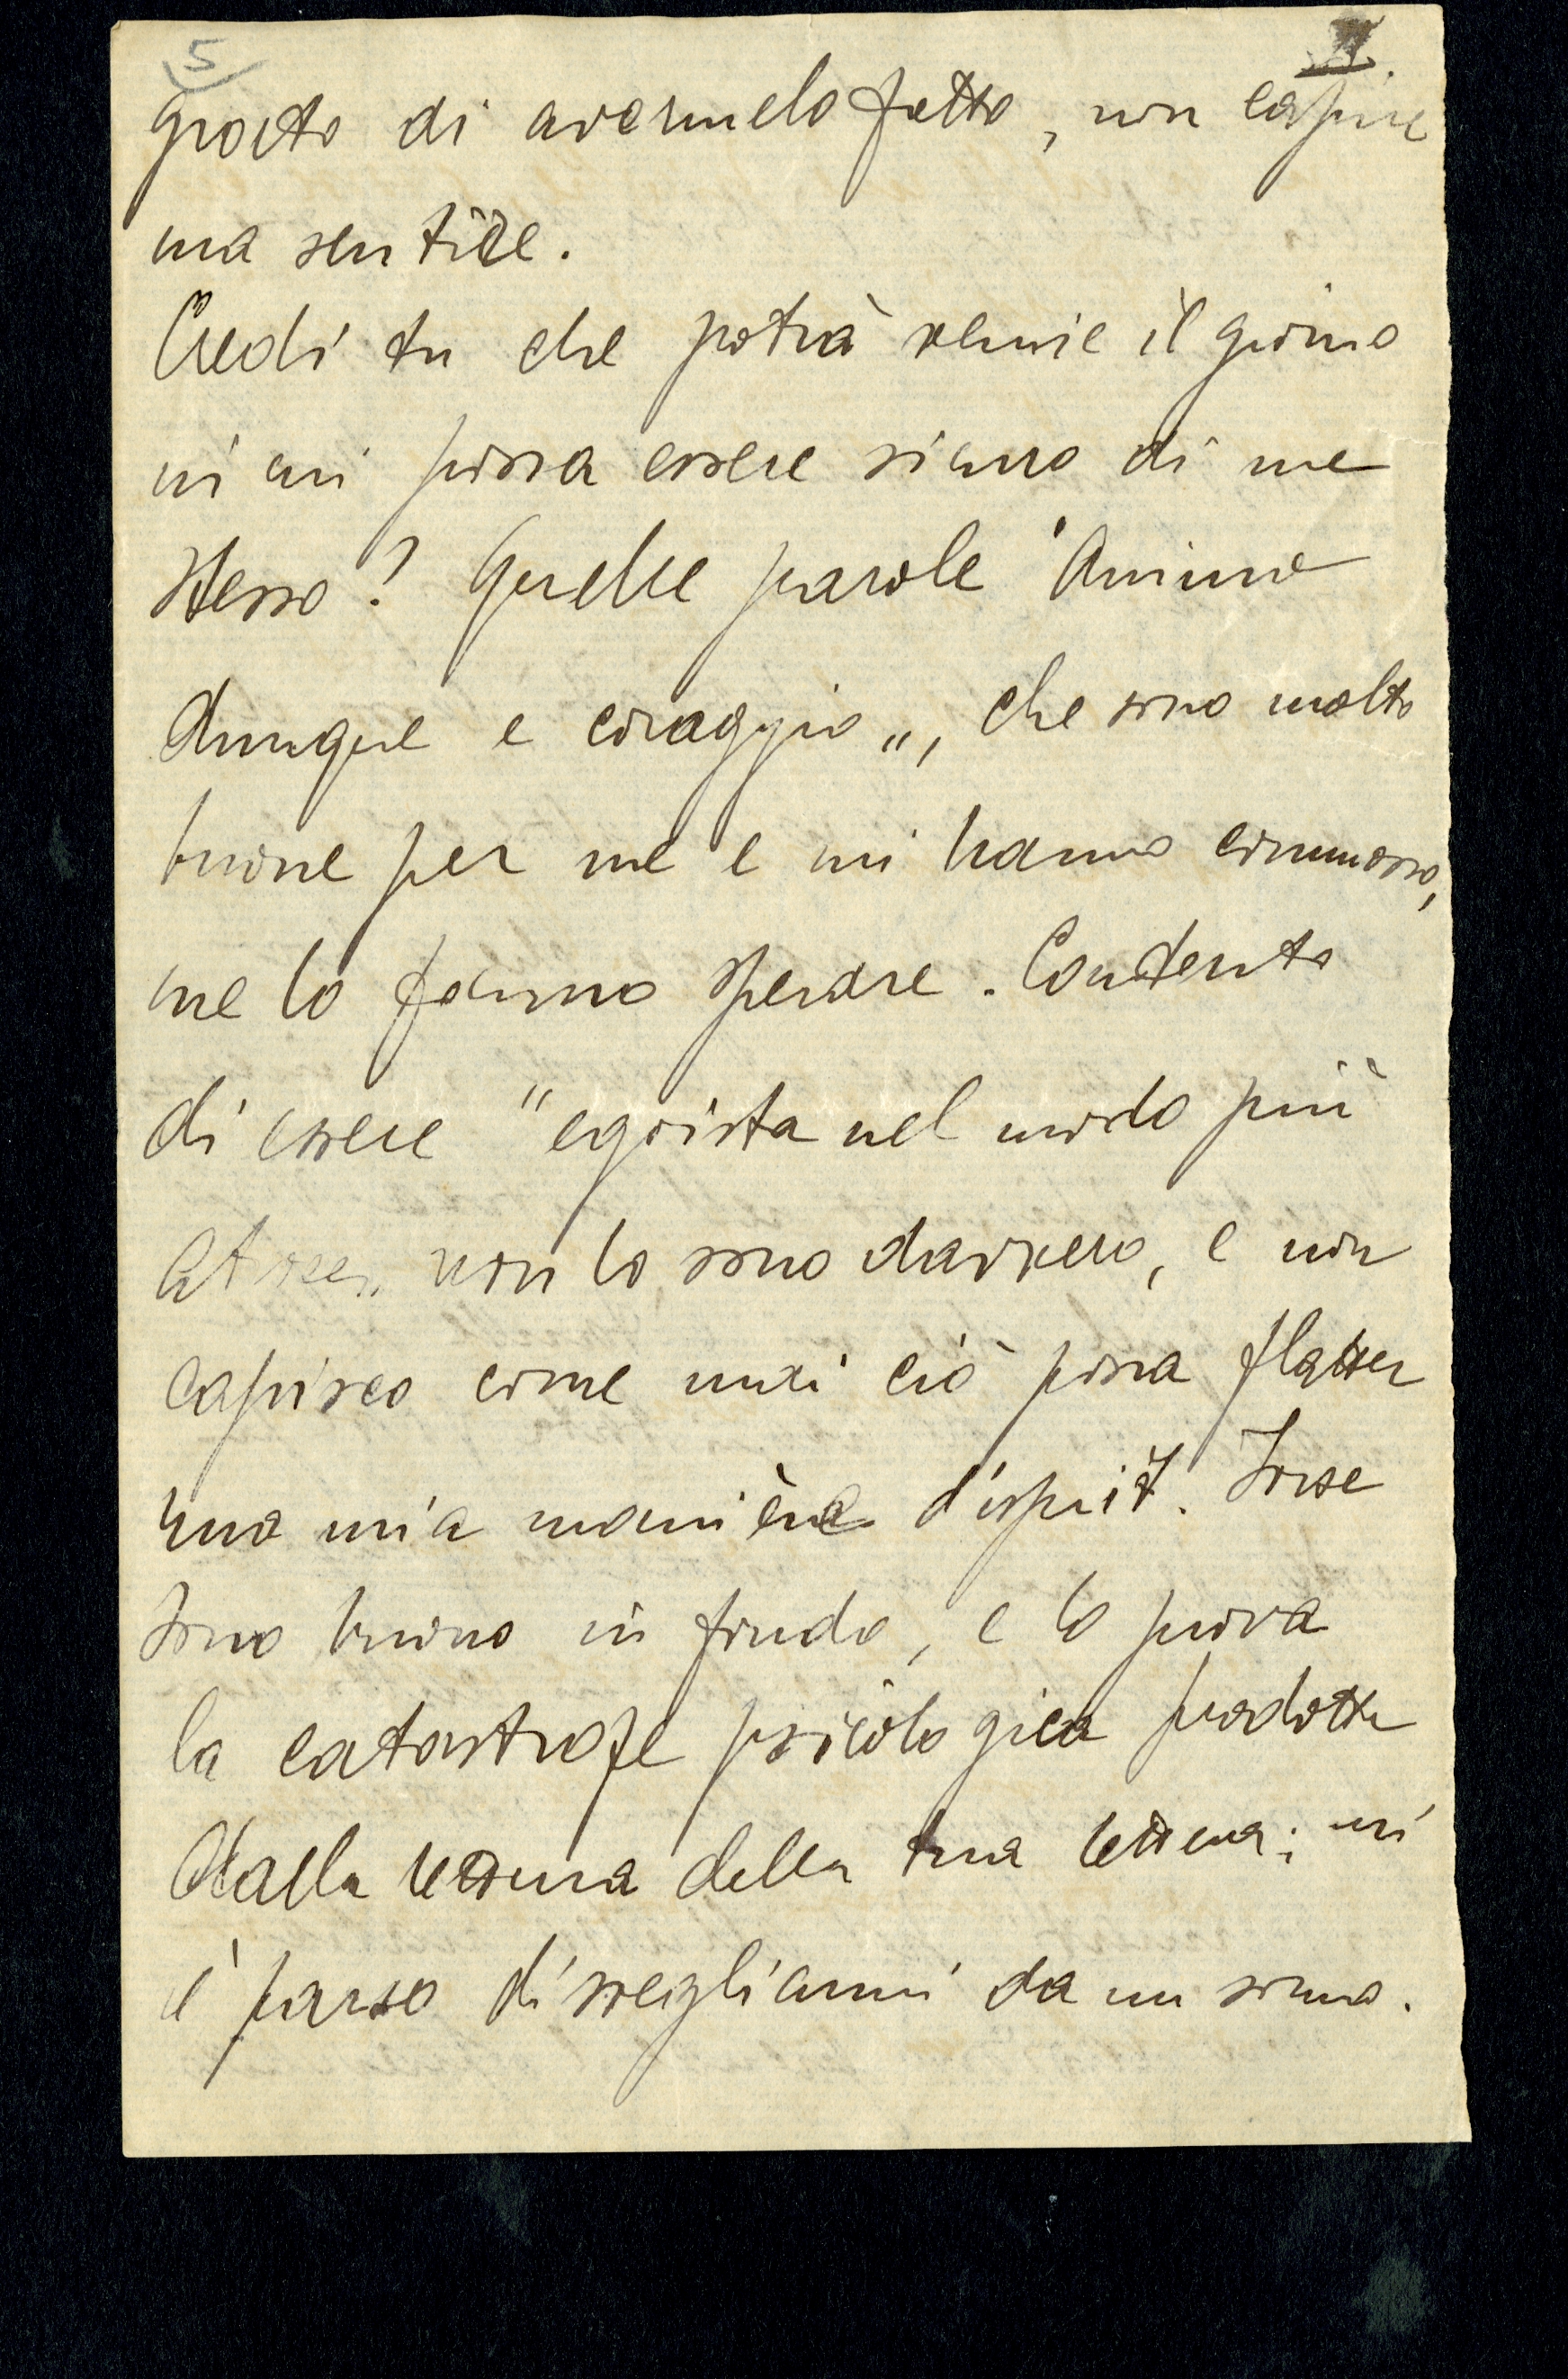 5
II.
grato di avermelo fatto, non capire
ma sentire.
Credi tu che potrà venire il giorno
in cui possa essere sicuro di me
stesso? Quelle parole "Animo
dunque e coraggio", che sono molto
buone per me e mi hanno commosso,
me lo fanno sperare. Contento
di essere "egoista nel modo più
atroce" non lo sono davvero, e non
capisco come mai ciò possa flatter
una mia manière d'esprit. Forse
sono buono in fondo, e lo prova
la catastrofe psicologica prodotta
dalla lettura della tua lettera; mi
è parso di svegliarmi da un sonno.